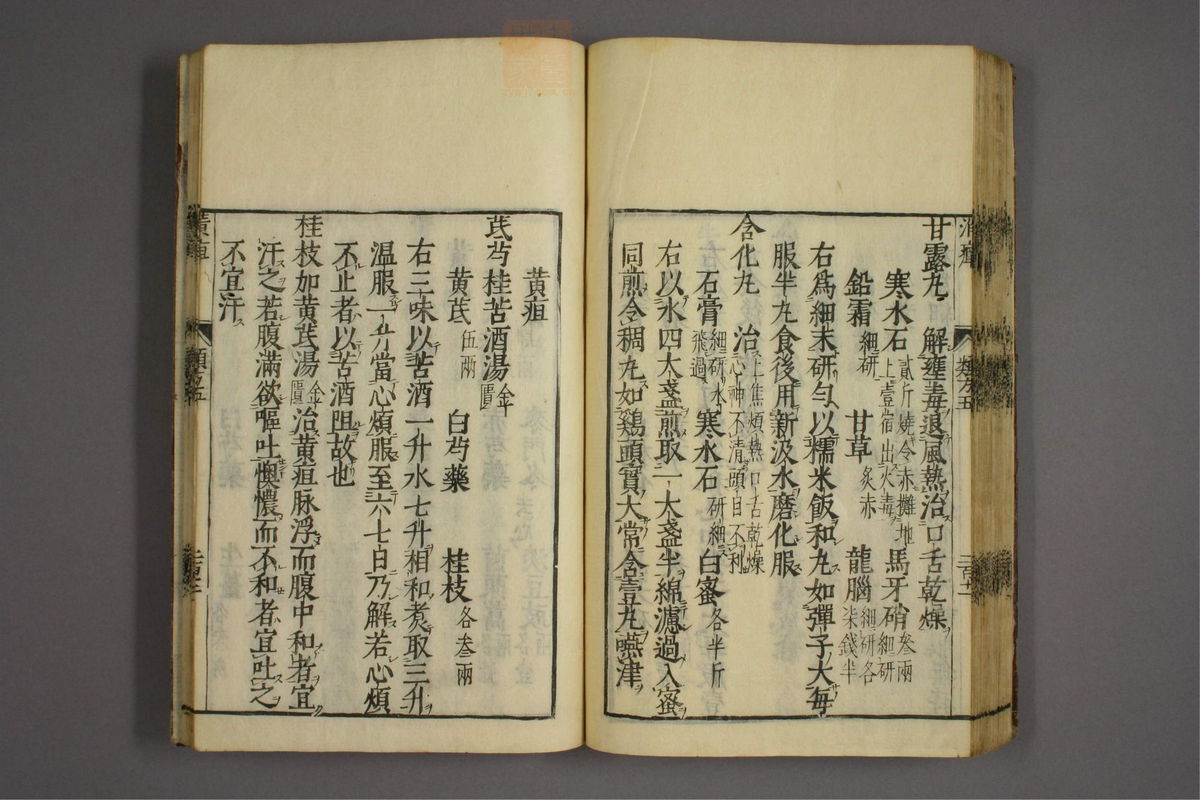 甘露丸 解壅毒退風熱治口舌乾燥
寒水石 貳斤燒令赤攤地上壹宿出火毒 馬牙硝 叄兩細研
鉛霜 細研 甘草 炙赤 龍腦 細研各柒錢半
右爲細末研勻以糯米飯和丸如彈子大每
服半丸食後用新汲水磨化服
含化丸 治上焦煩熱口舌乾燥心神不清頭目不利
石膏 細研水飛過 寒水石 研細 白蜜 各半斤
右以水四大盞煎取一大盞半綿濾過入蜜
同煎令稠丸如鷄頭實大常含壹丸嚥津
黃疸
芪芍桂苦酒湯 金匱
黃芪 伍兩 白芍藥 桂枝 各叄兩
右三味以苦酒一升水七升相和煮取三升
温服一升當心煩服至六七日乃解若心煩
不止者以苦酒阻故也
桂枝加黃芪湯 金匱 治黃疸脉浮而腹中和者宜
汗之若腹滿欲嘔吐懊憹而不和者宜吐之
不宜汗